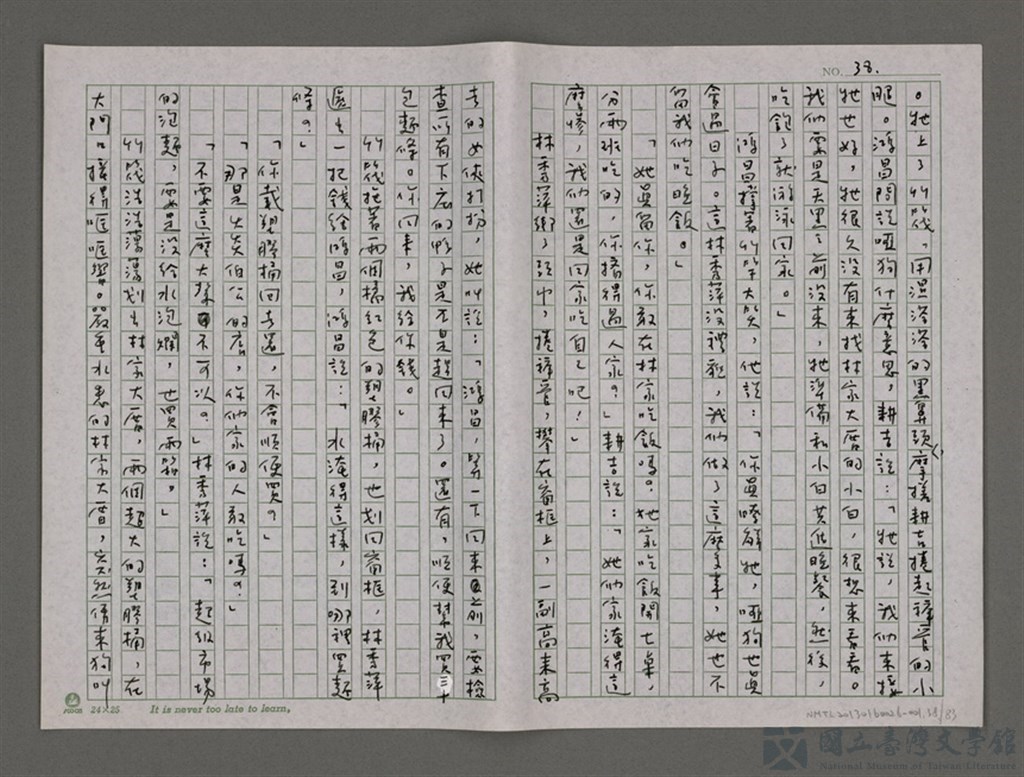 NO. 38.
。牠上了竹筏，用濕溶溶的黑鼻頭摩搓耕吉捲起褲管的小
腿。鴻昌問說啞狗什麼意思，耕吉說：「牠說，我們來接
牠也好，牠很久沒有來找林家大厝的小白，很想來看看。
我們要是天黑之前沒來，牠準備和小白共進晚餐，然後，
吃飽了就游泳回家。」
鴻昌撐著竹竿大笑，他說：「你真瞭解牠，啞狗也真
會過日子。這林秀萍沒禮貌，我們做了這麼多事，她也不
留我們吃晚飯。」
「她真留你，你敢在林家吃飯嗎？她家吃飯開七桌，
分兩班吃的，你搶得過人家？」耕吉說：「她們家淹得這
麼慘，我們還是回家吃自己吧！」
林秀萍綁了頭巾，捲褲管，攀在窗框上，一副高來高
去的女俠打扮，她叫說：「鴻昌，等一下回來之前，要檢
查所有下店的鴨子是不是趕回來了。還有，順便幫我買三十
包麵條。你回來，我給你錢。」
竹筏拖著兩個橘紅色的塑膠桶，也划回窗框，林秀萍
遞出一把錢給鴻昌，鴻昌說：「水淹得這樣，到哪裡買麵
條？」
「你載塑膠桶回去還，不會順便買？」
「那是火炎伯公的店，你們家的人敢吃嗎？」
「不要這麼大聲不可以？」林秀萍說：「超級市場
的泡麵，要是沒給水泡爛，也買兩箱。」
竹筏浩浩蕩蕩划出林家大厝，兩個超大的塑膠桶，在
大門口撞得哐哐響。嚴重水患的林家大厝，突然傳來狗叫
24×25
It is never too late to learn,
NMTL20130160026-001.38/83
國立臺灣文學館
National Museum of Taiwan Literature